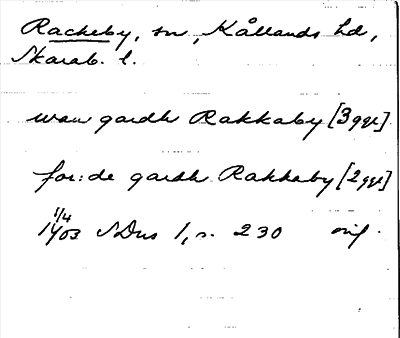 Rackeby, sn, Kållands hd,
Skarab. l.
wan gardh Rakkaby [3 ggr]
for:de gardh Rakkeby [2 ggr]
1/4 1403 SDns 1, s. 230 orig.